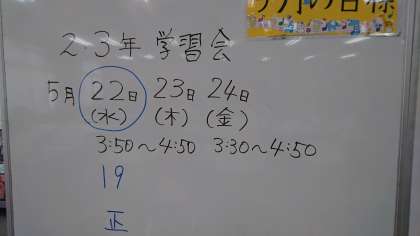 今月の目標
2.3年 学習会
5月 22日 23日 24日
(水) (木) (金)
3:50〜4:50 3:30〜4:50
19
正